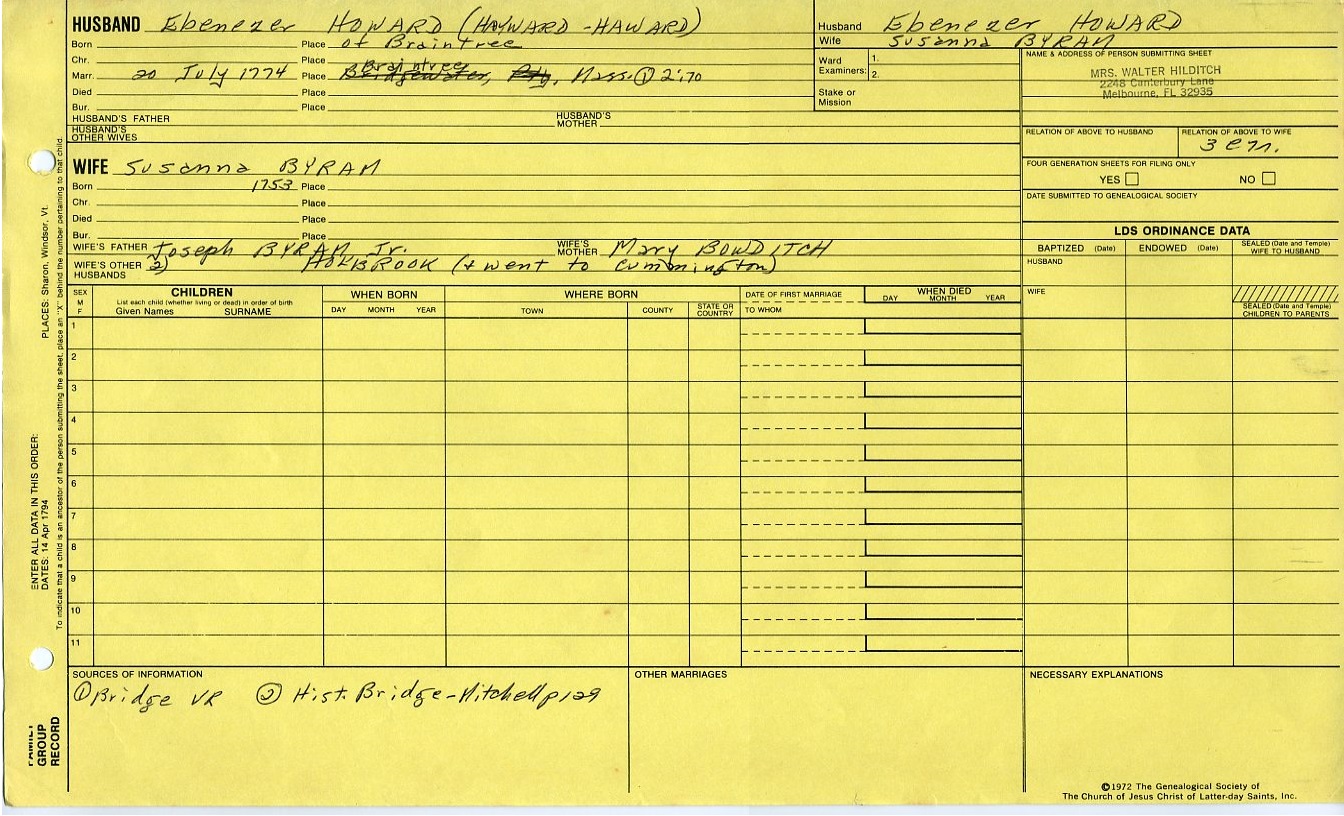 HUSBAND Ebenezer HOWARD (HAYWARD-HAWARD)
Born Place of Braintree
Chr. Place Braintree
Marr. 20 July 1774 Place Bridgewater, Ply, Mass. ① 2:170
Died Place
Bur. Place
HUSBAND'S FATHER HUSBAND'S MOTHER
HUSBAND'S OTHER WIVES
Husband Ebenezer HOWARD
Wife Susanna BYRAM
Ward Examiners: 1.
2.
Stake or Mission
NAME & ADDRESS OF PERSON SUBMITTING SHEET
MRS. WALTER HILDITCH
2248 Canterbury Lane
Melbourne, FL 32935
RELATION OF ABOVE TO HUSBAND RELATION OF ABOVE TO WIFE
FOUR GENERATION SHEETS FOR FILING ONLY
YES NO
DATE SUBMITTED TO GENEALOGICAL SOCIETY
WIFE Susanna BYRAM
Born 1753 Place
Chr. Place
Died Place
Bur. Place
WIFE'S FATHER Joseph BYRAM Jr. WIFE'S MOTHER Mary BOWDITCH
WIFE'S OTHER HUSBANDS 2) HOLBROOK (& went to Cummington)
LDS ORDINANCE DATA
BAPTIZED (Date) ENDOWED (Date) SEALED (Date and Temple) WIFE TO HUSBAND
HUSBAND
WIFE
SEALED (Date and Temple) CHILDREN TO PARENTS
SEX M F
CHILDREN
List each child (whether living or dead) in order of birth
Given Names SURNAME
WHEN BORN
DAY MONTH YEAR
WHERE BORN
TOWN COUNTY STATE OR COUNTRY
DATE OF FIRST MARRIAGE
TO WHOM
WHEN DIED
DAY MONTH YEAR
1
2
3
4
5
6
7
8
9
10
11
SOURCES OF INFORMATION
① Bridge VR ② Hist. Bridge-Mitchell p 129
OTHER MARRIAGES
NECESSARY EXPLANATIONS
©1972 The Genealogical Society of
The Church of Jesus Christ of Latter-day Saints, Inc.
PLACES: Sharon, Windsor, Vt.
To indicate that a child is an ancestor of the person submitting the sheet, place an "X" behind the number pertaining to that child.
ENTER ALL DATA IN THIS ORDER:
DATES: 14 Apr 1794
FAMILY
GROUP
RECORD